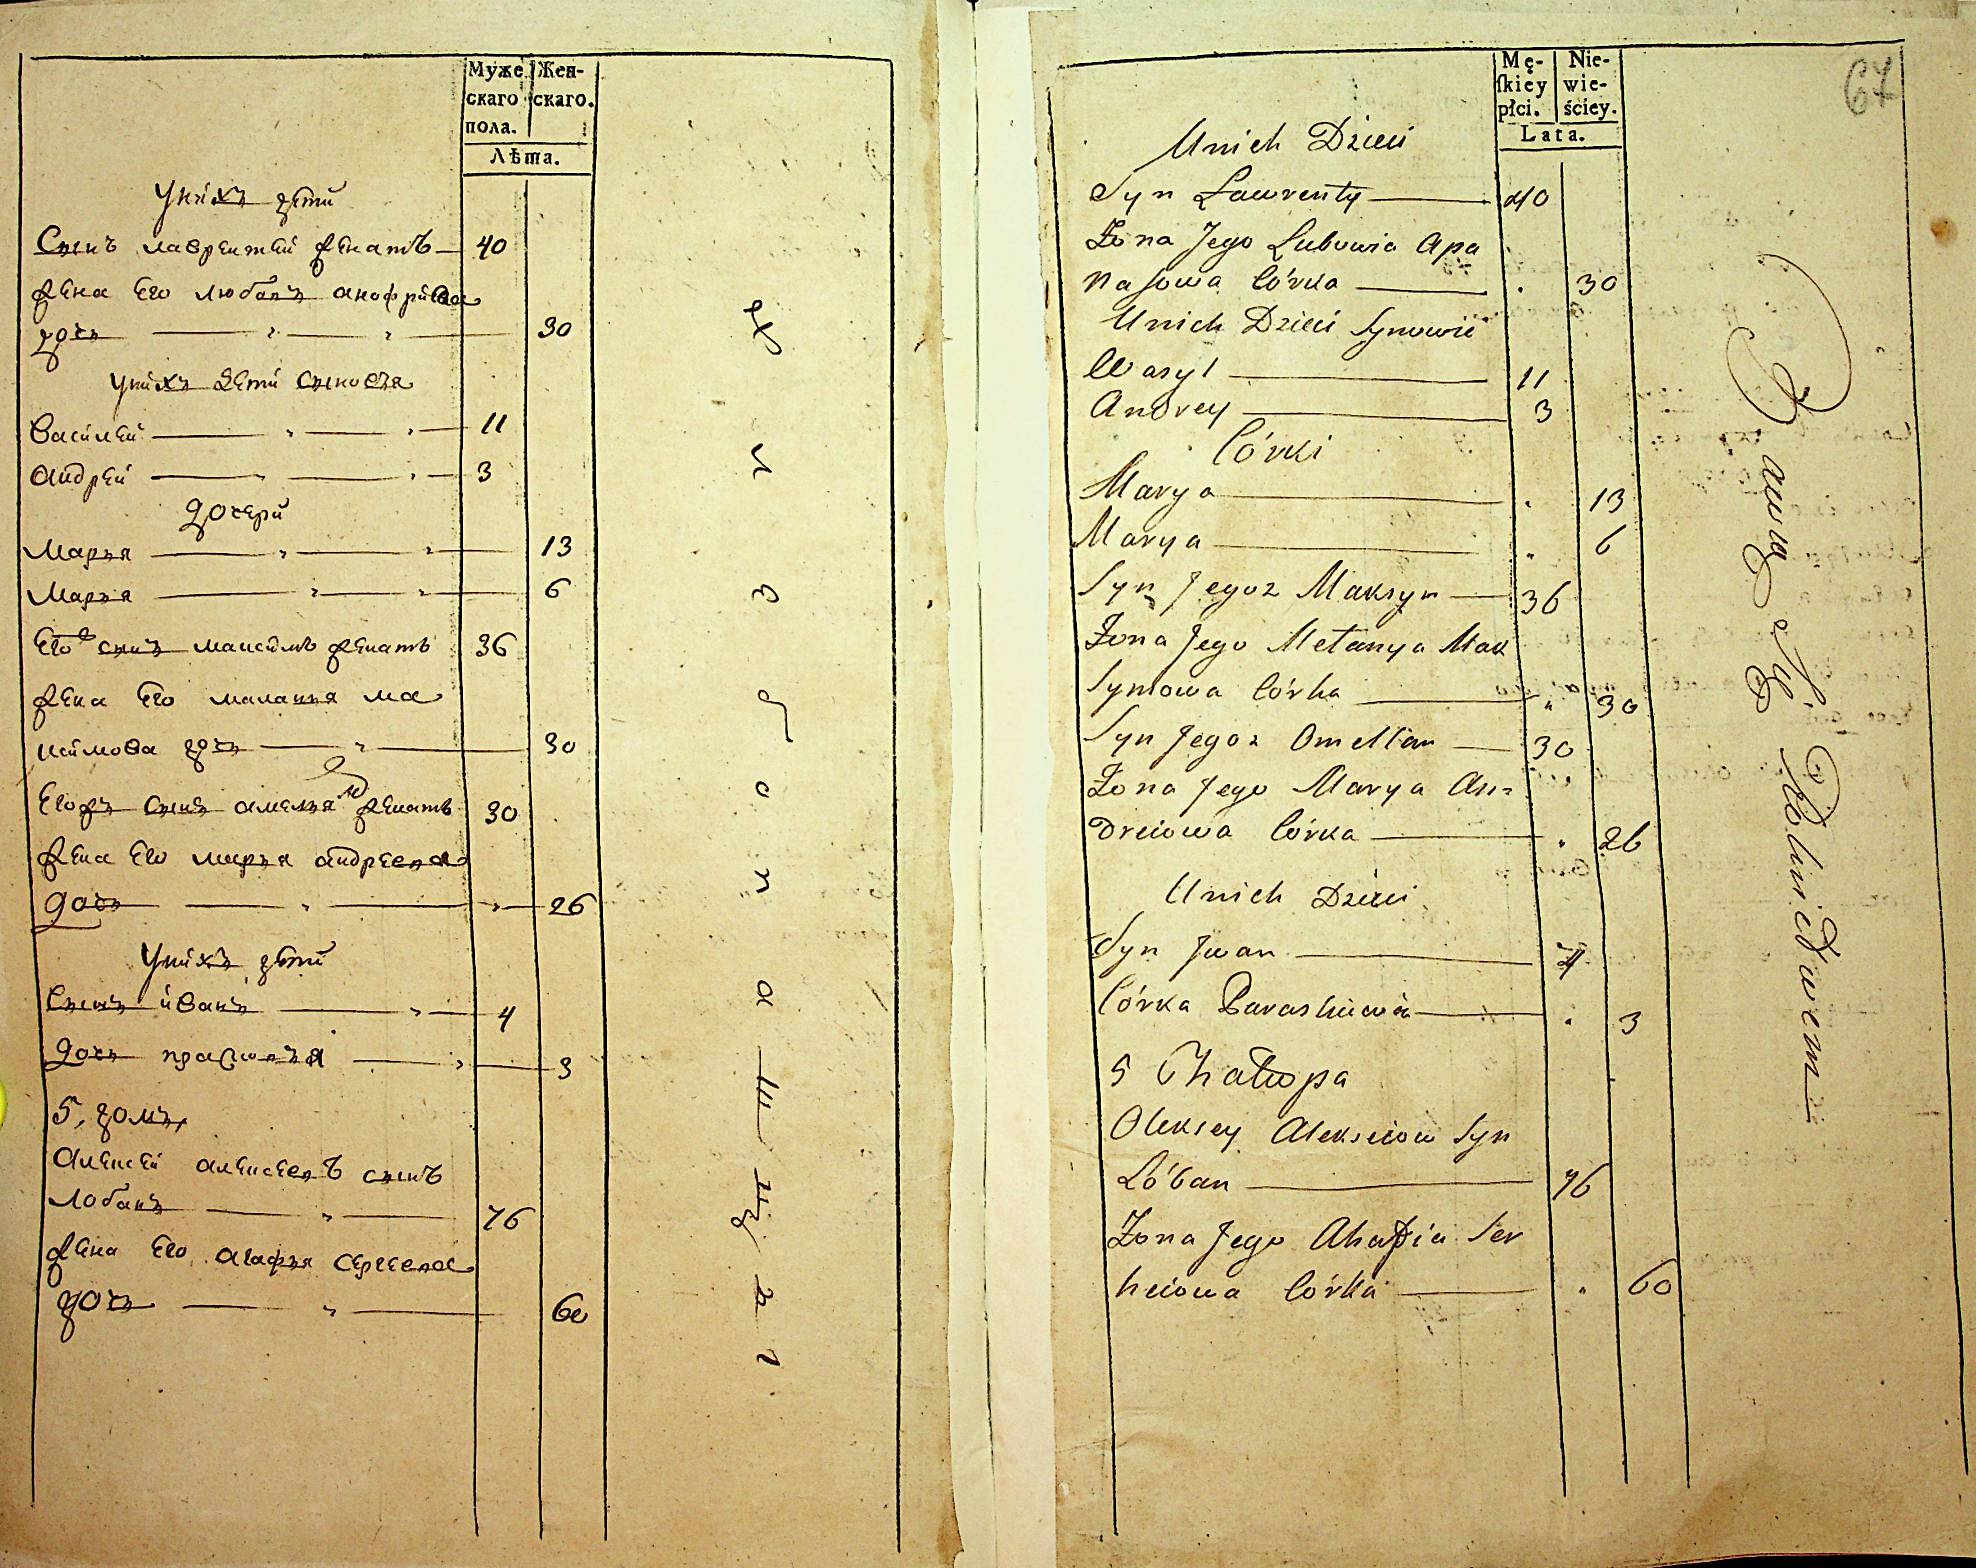 Муже скаго пола.
Жен- скаго.
Лѣта.
Унихъ дѣти
Сынъ лаврентей женатъ 40
жена Его любовь анофриева
дочь 30
Унихъ дети сыновья
василей 11
андрей 3
дочери
Марья 13
Марья 6
Егожъ сынъ максимъ женатъ 36
жена Его маланья ма
ксимова дочь 30
Егожъ сынъ амелья женатъ 30
жена Его марья андреева
дочь 26
Унихъ дѣти
Сынъ иванъ 4
дочь 3
5, домъ,
Алексей алексеевъ сынъ
лобанъ 76
жена Его агафья сергеева
дочь 60
67
Mę- skiey płci.
Nie- wie- ściey.
Lata.
Unich Dzieci
Syn Lawrenty 40
Żona Jego Lubowia Apa
nasowa Córka 30
Unich Dzieci Synowie
Wasyl 11
Andrey 3
Córki
Marya 13
Marya 6
Syn Jegoz Maksym 36
Żona Jego Metanya Mak
Symowa Córka 30
Syn Jegoz Omelian 30
Żona Jego Marya An=
dreiowa Córka 26
Unich Dzieci
Syn Jwan 4
Córka Paraskiewia 3
5 Chałupa
Oleksey Alekseiow Syn
Łóban 76
Żona Jego Ahafia Ser
heiowa Córka 60
Bawią Się Rolnictwem